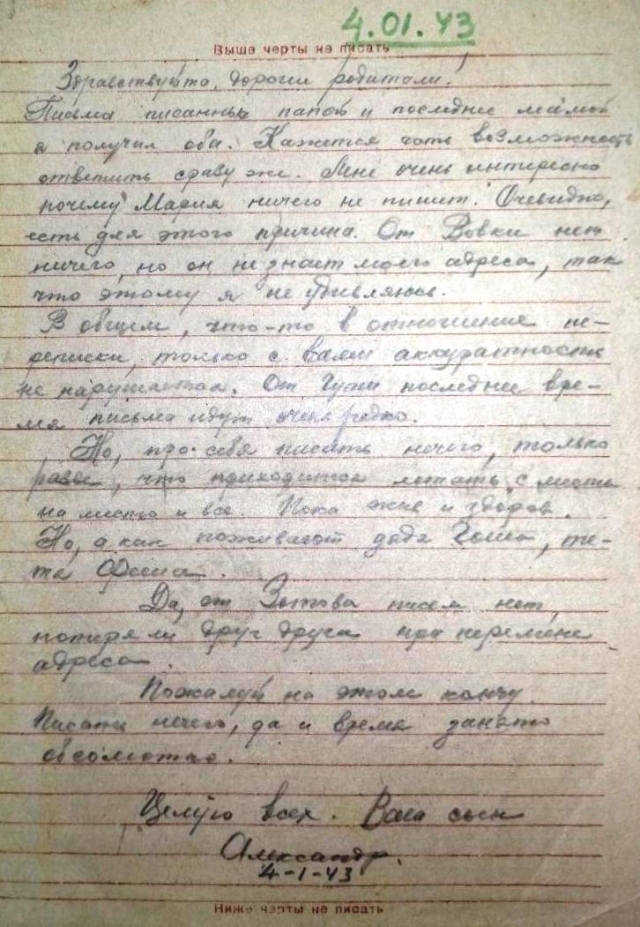 4.01.43
Выше черты не писать
Здравствуйте, дороги родители!
Письма писанные папой и последнее мамой
я получил оба. Кажется хоть возможность
ответить сразу же. Мне очень интересно
почему Мария ничего не пишет. Очевидно,
есть для этого причина. От Вовки нет
ничего, но он не знает моего адреса, так
что этому я не удивляюсь.
В общем, что-то в отношение пе-
реписки, только с Вами аккуратность
не нарушается. От Гути последнее вре-
мя письма идут очень редко.
Но, про себя писать нечего, только
разве, что приходится летать с места
на место и все. Пока жив и здоров.
Но, а как поживает дядя Гоша, те-
тя
Да, от Зотова писем нет,
потеряли друг друга при перемене
адреса.
Пожалуй на этом кончу.
Писать нечего, да и время занято
обсолютно.
Целую всех. Ваш сын
Александр.
4-1-43
Ниже черты не писать